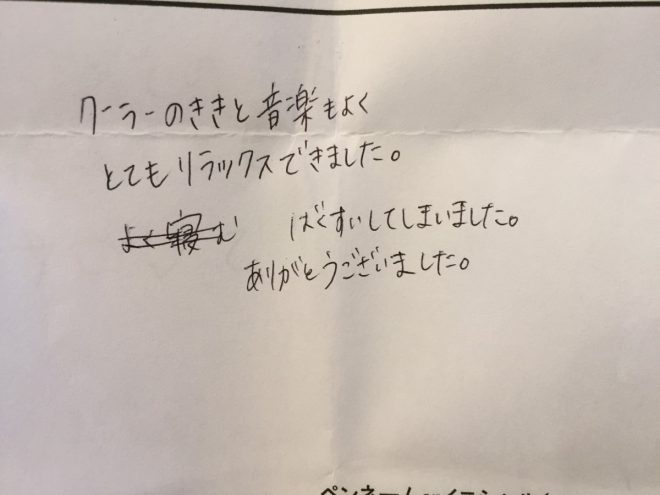 クーラーのききと音楽もよく
とてもリラックスできました。
よく寝む ばくすいしてしまいました。
ありがとうございました。
ペンネーム